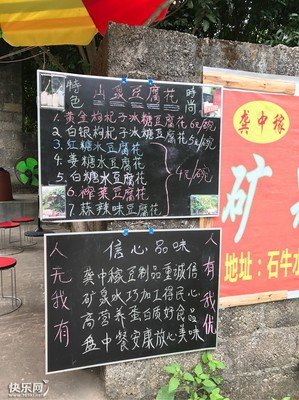 特色
山泉豆腐花
时尚
1.黄金枸杞子冰糖豆腐花 6元/碗
2.白银枸杞子水糖豆腐花 5元/碗
3.红糖水豆腐花
4.姜糖水豆腐花
5.白糖水豆腐花
4元/碗
6.榨菜豆腐花
7.蒜辣味豆腐花
人无我有
信心品味
人有我优
龚中稼豆制品重诚信
矿泉水巧加工得民心
高营养蛋白质好食品
盘中餐安康放心美味
龚中稼
矿
地址：石牛水
快乐网